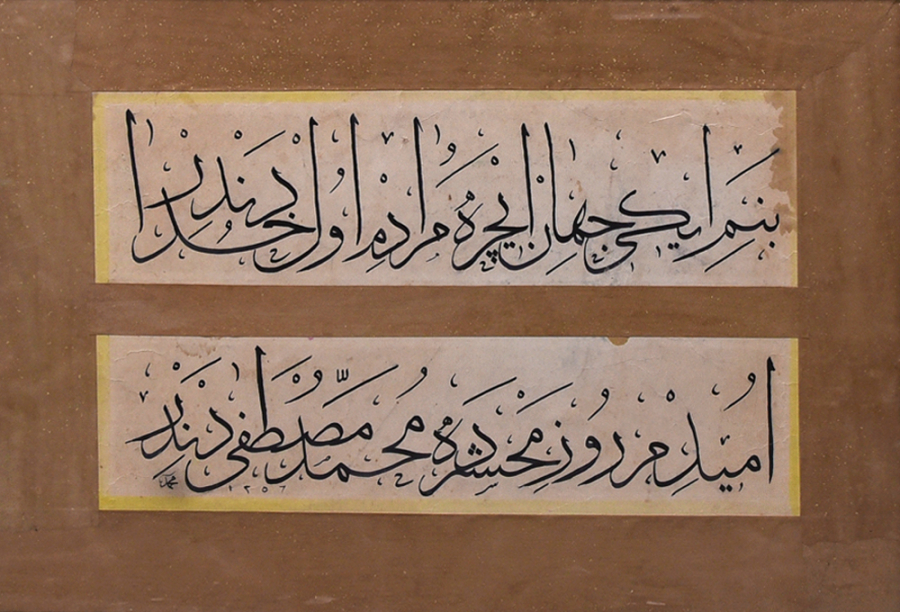 بنم ایکی جهان ایچره مرادم اول خدادندر
امیدم روز محشرده محمد مصطفی دندر
١٢٥٦